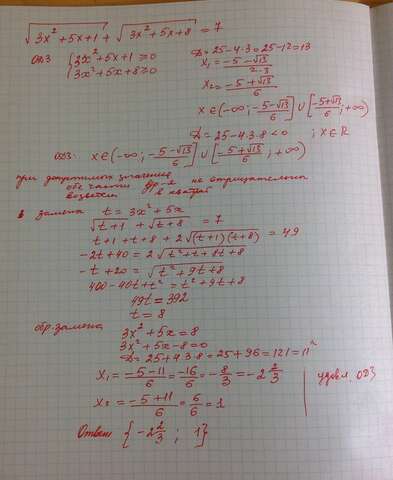 √(3x²+5x+1) + √(3x²+5x+8) = 7
ОДЗ { 3x²+5x+1 ≥ 0
3x²+5x+8 ≥ 0
D = 25-4·3 = 25-12 = 13
x₁ = (-5-√13)/(2·3)
x₂ = (-5+√13)/6
x ∈ (-∞; (-5-√13)/6] ∪ [(-5+√13)/6; +∞)
D = 25-4·3·8 < 0 ; x ∈ R
ОДЗ: x ∈ (-∞; (-5-√13)/6] ∪ [(-5+√13)/6; +∞)
при допустимых значениях
обе части ур-я не отрицательны
возведём в квадрат
замена t = 3x²+5x
√(t+1) + √(t+8) = 7
t+1+t+8+2√((t+1)(t+8)) = 49
-2t+40 = 2√(t²+t+8t+8)
-t+20 = √(t²+9t+8)
400-40t+t² = t²+9t+8
49t = 392
t = 8
обр. замена
3x²+5x = 8
3x²+5x-8 = 0
D = 25+4·3·8 = 25+96 = 121 = 11²
x₁ = (-5-11)/6 = -16/6 = -8/3 = -2 2/3
x₂ = (-5+11)/6 = 6/6 = 1
удовл. ОДЗ
Ответ {-2 2/3; 1}